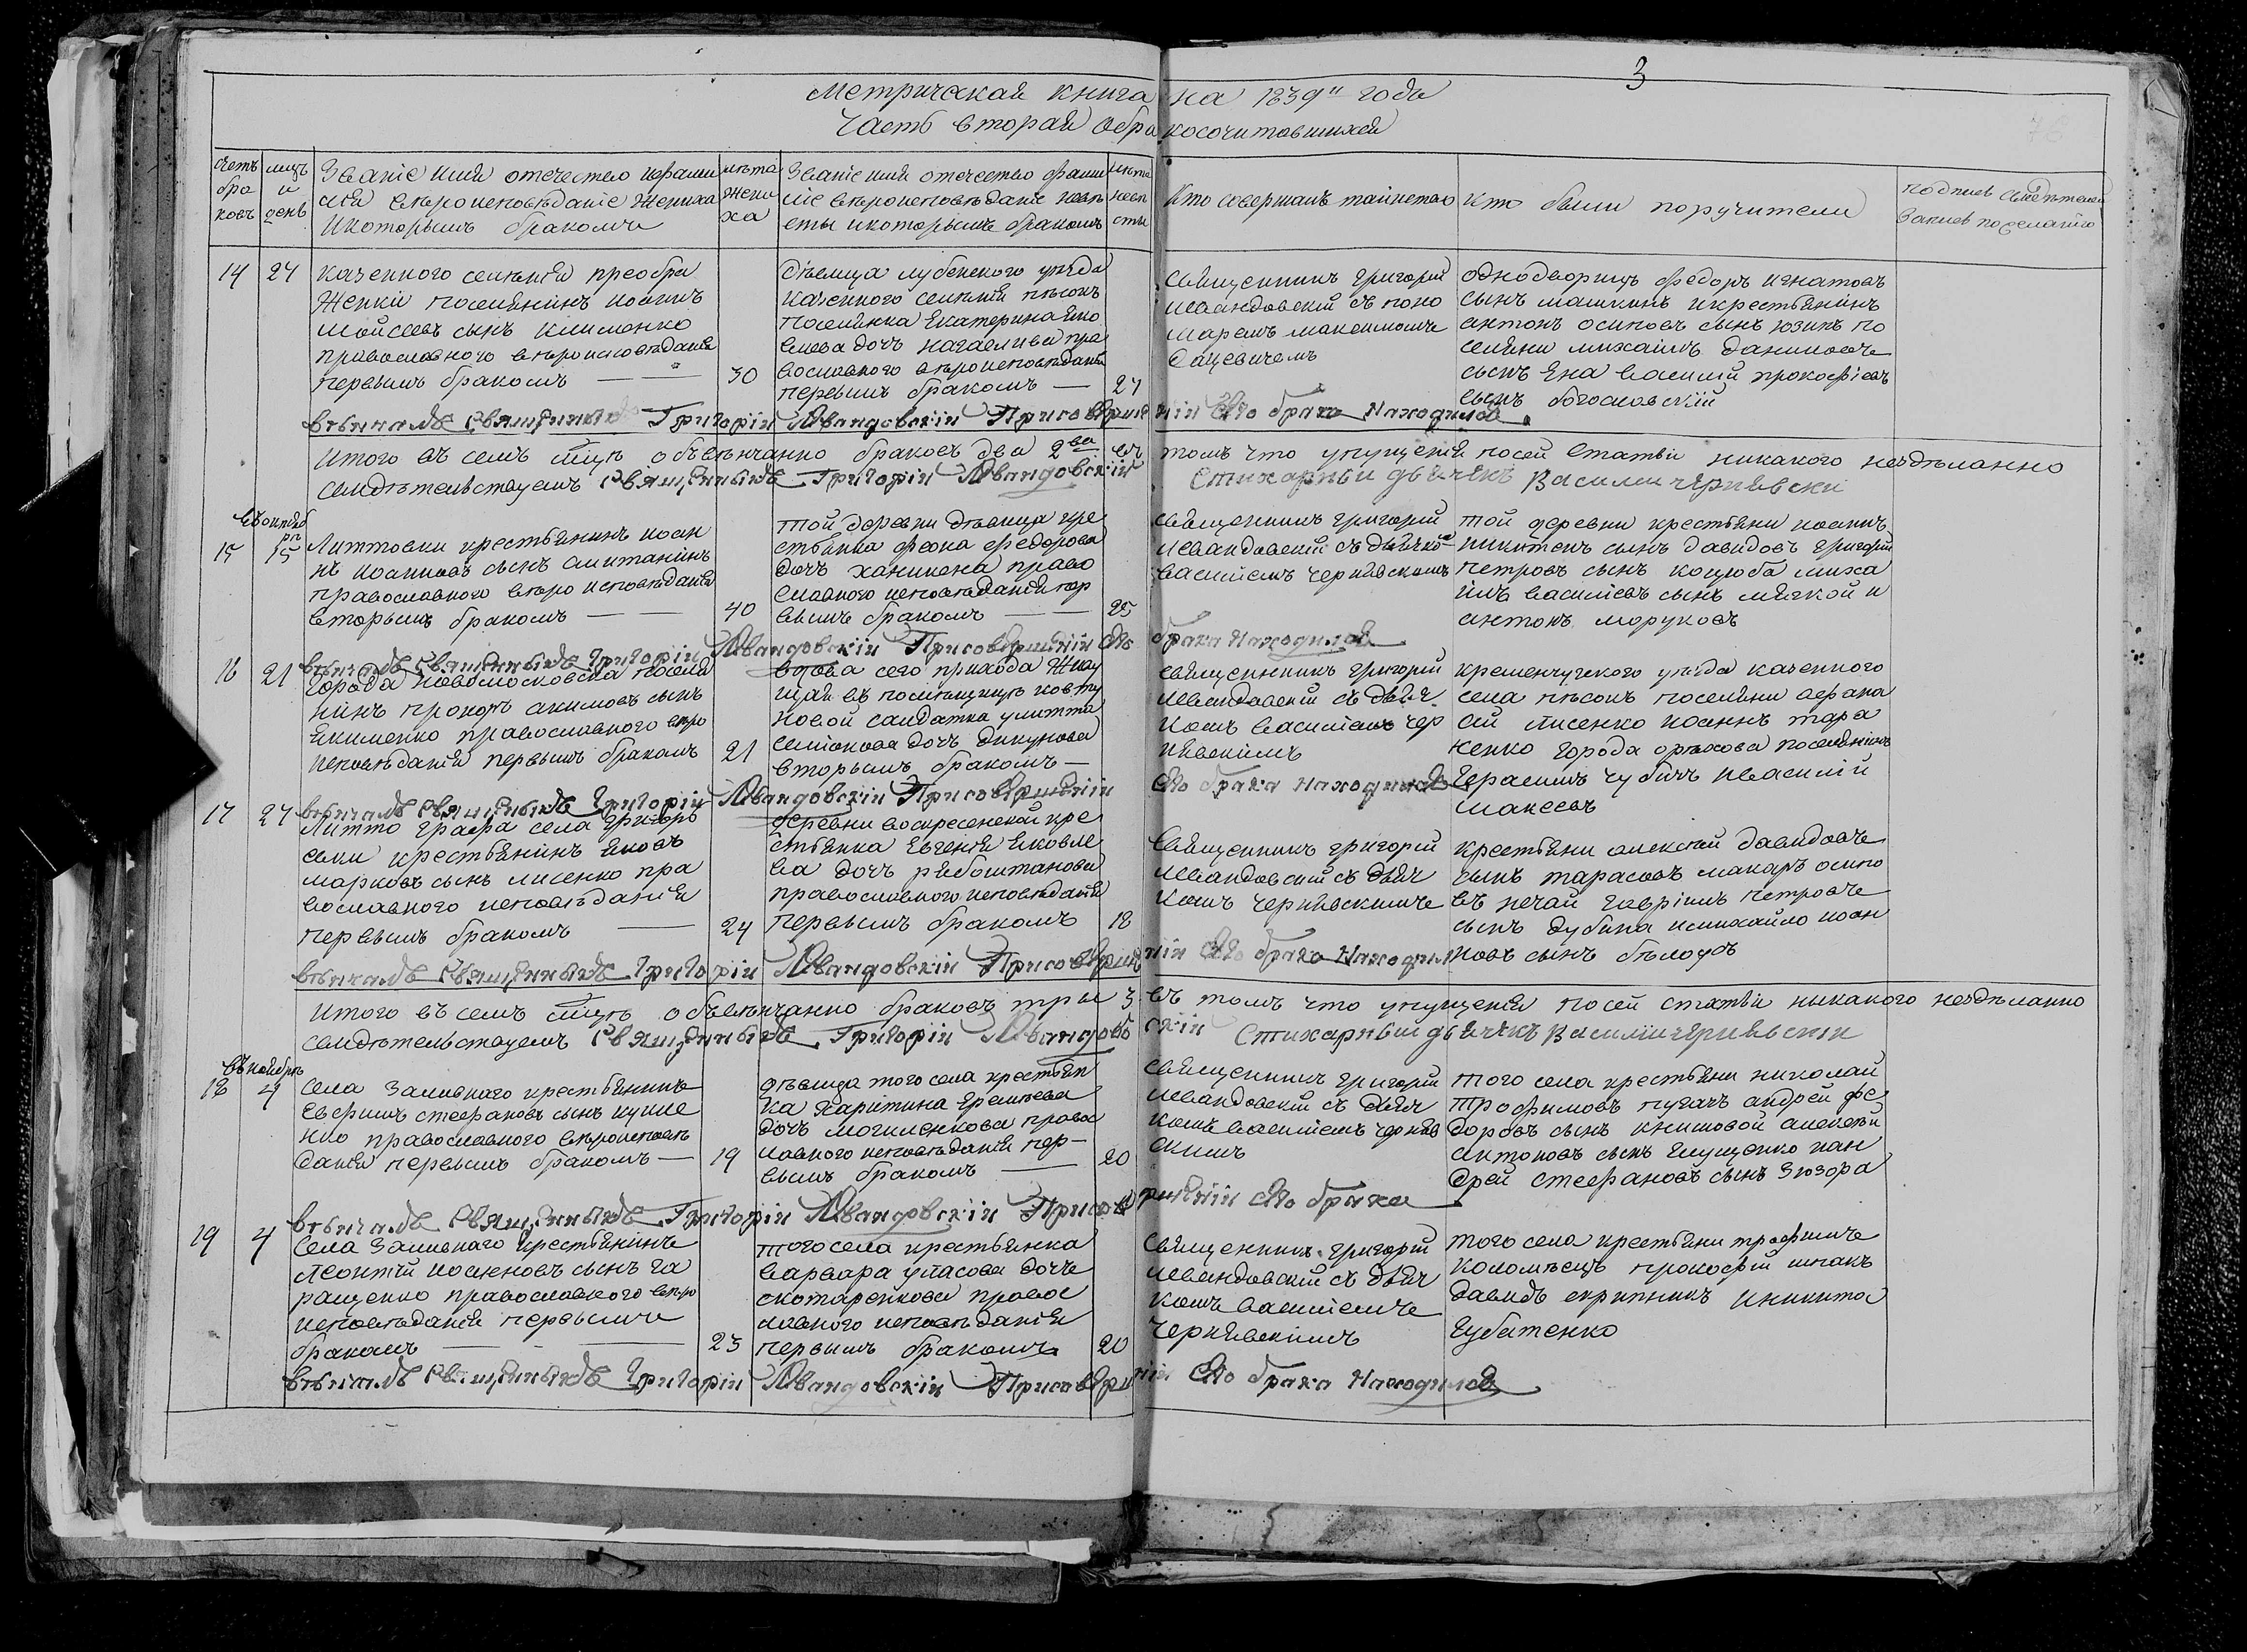 3
Метрическая книга на 1839ⁿ годъ
Часть вторая обракосочитавшихся
счетъ
бра
ковъ
мцъ
и
день
Званіе имя отечество ифами
лія вѣроисповѣданіе Жениха
икоторымъ бракомъ
лѣта
Жени
ха
Званіе имя отечество фами
ліе вѣроисповѣданіе невѣ
сты икоторымъ бракомъ
лѣта
невѣ
сты
Кто совершалъ таинство
Кто были поручители
подпись свидѣтелей
записъ пожеланію
14
27
казенного селенія преобра
Женки поселянинъ иоаннъ
Мойсеевъ сынъ клименко
православного вѣроисповѣданія
первымъ бракомъ
30
дѣвица лубенского уѣзда
казенного селенія пѣсокъ
поселянка екатерина яко
влева дочъ нагаевцива пра
вославного вѣроисповѣданія
первымъ бракомъ
27
священникъ григорій
левандовскій съ поно
маремъ максимомъ
дацевичемъ
однодворицъ федоръ игнатовъ
сынъ машкинъ икрестьянинъ
антонъ осиповъ сынъ юзикъ по
селяни михаилъ даниловъ
сынъ ена василій прокофіевъ
сынъ богословскій
вѣнчалъ священникъ Григорій Левандовскій При совершеніи сего брака находился
Итого въ семъ мцѣ объвѣнчанно браковъ два 2ва въ томъ что упущенія посей статьи никакого нездѣланно
свидѣтельствуемъ священникъ Григорій Левандовскій Стихарный дьячекъ Василій чернявски
въ октяб
ря
15
15
Литтовки крестьянинъ иоан
нъ иоанновъ сынъ литанинъ
православного вѣро исповѣданія
вторымъ бракомъ
40
той деревни дѣвица кре
стьянка фекла федорова
дочъ ханинена право
славного исповѣданія пер
вымъ бракомъ
25
священникъ григорій
левандовскій съ дьячко
василіемъ чернявскимъ
той деревни крестьяни иоаннъ
никитенъ сынъ давидовъ григорій
петровъ сынъ коцюба миха
илъ василіевъ сынъ мягкой и
антонъ моруковъ
вѣнчалъ священникъ Григорій Левандовскій При совершеніи сего брака находился
16
21
Города новомосковска поселя
нинъ прокопъ акимовъ сынъ
якименко православного вѣро
исповѣданія первымъ бракомъ
21
вдова сего прихода живу
щая въ помѣщицы ковту
новой салдатка улитта
семіонова дочъ дикунова
вторымъ бракомъ
священникъ григорій
левандовскій съ дьяч
комъ василіемъ чер
нявскимъ
кременчугского уѣзда казенного
села пѣсокъ поселяни афана
сій лисенко иоаннъ тара
ненко города орѣхова поселянинъ
герасимъ чубичъ ивасилій
макеевъ
вѣнчалъ священникъ Григорій Левандовскій При совершеніи сего брака находился
17
27
Литто графа села григоро
вки крестьянинъ яковъ
марковъ сынъ лисенко пра
вославного исповѣданія
первымъ бракомъ
24
деревни воскресенской кре
стьянка евгенія яковле
ва дочъ рябоштанова
православного исповѣданія
первымъ бракомъ
18
священникъ григорій
левандовскій съ дьяч
комъ чернявскимъ
крестьяни алексій давидовъ
сынъ тарасовъ макаръ осипо
въ нечай гавріилъ петровъ
сынъ дубина имихайло иоан
новъ сынъ бѣлоусъ
вѣнчалъ священникъ Григорій Левандовскій При совершеніи сего брака находил
Итого въ семъ мцѣ объвѣнчанно браковъ тры 3 въ томъ что упущенія посей статьи ныкакого нездѣланно
свидѣтельствуемъ священникъ Григорій Левандовскій Стихарный дьячекъ Василій чернявскій
въ ноябрѣ
18
4
села Заливнаго крестьянинъ
Евфимъ стефановъ сынъ куше
нко православного вѣроисповѣ
данія первымъ бракомъ
19
дѣвица того села крестьян
ка харитина ереміева
дочъ могиленкова право
лавного исповѣданія пер
вымъ бракомъ
20
священникъ григорій
левандовскій съ дьяч
комъ василіемъ черняв
скимъ
того села крестьяни николай
трофимовъ пугачъ андрей фе
доровъ сынъ книшовой алексѣй
антоновъ сынъ глущенко иан
дрей стефановъ сынъ Зюзора
вѣнчалъ священникъ Григорій Левандовскій При совершеніи сего брака
19
4
Села Заливнаго крестьянинъ
леонтій иоанновъ сынъ га
ращенко православного вѣро
исповѣданія первымъ
бракомъ
23
того села крестьянка
варвара уласова дочъ
скотаренкова правос
лавного исповѣданія
первымъ бракомъ
20
священникъ григорій
левандовскій съ дьяч
комъ василіемъ
чернявскимъ
того села крестьяни трофимъ
коломѣецъ прокофій шпакъ
давидъ скрипникъ иникита
губатенко
вѣнчалъ священникъ Григорій Левандовскій При совершеніи сего брака находился